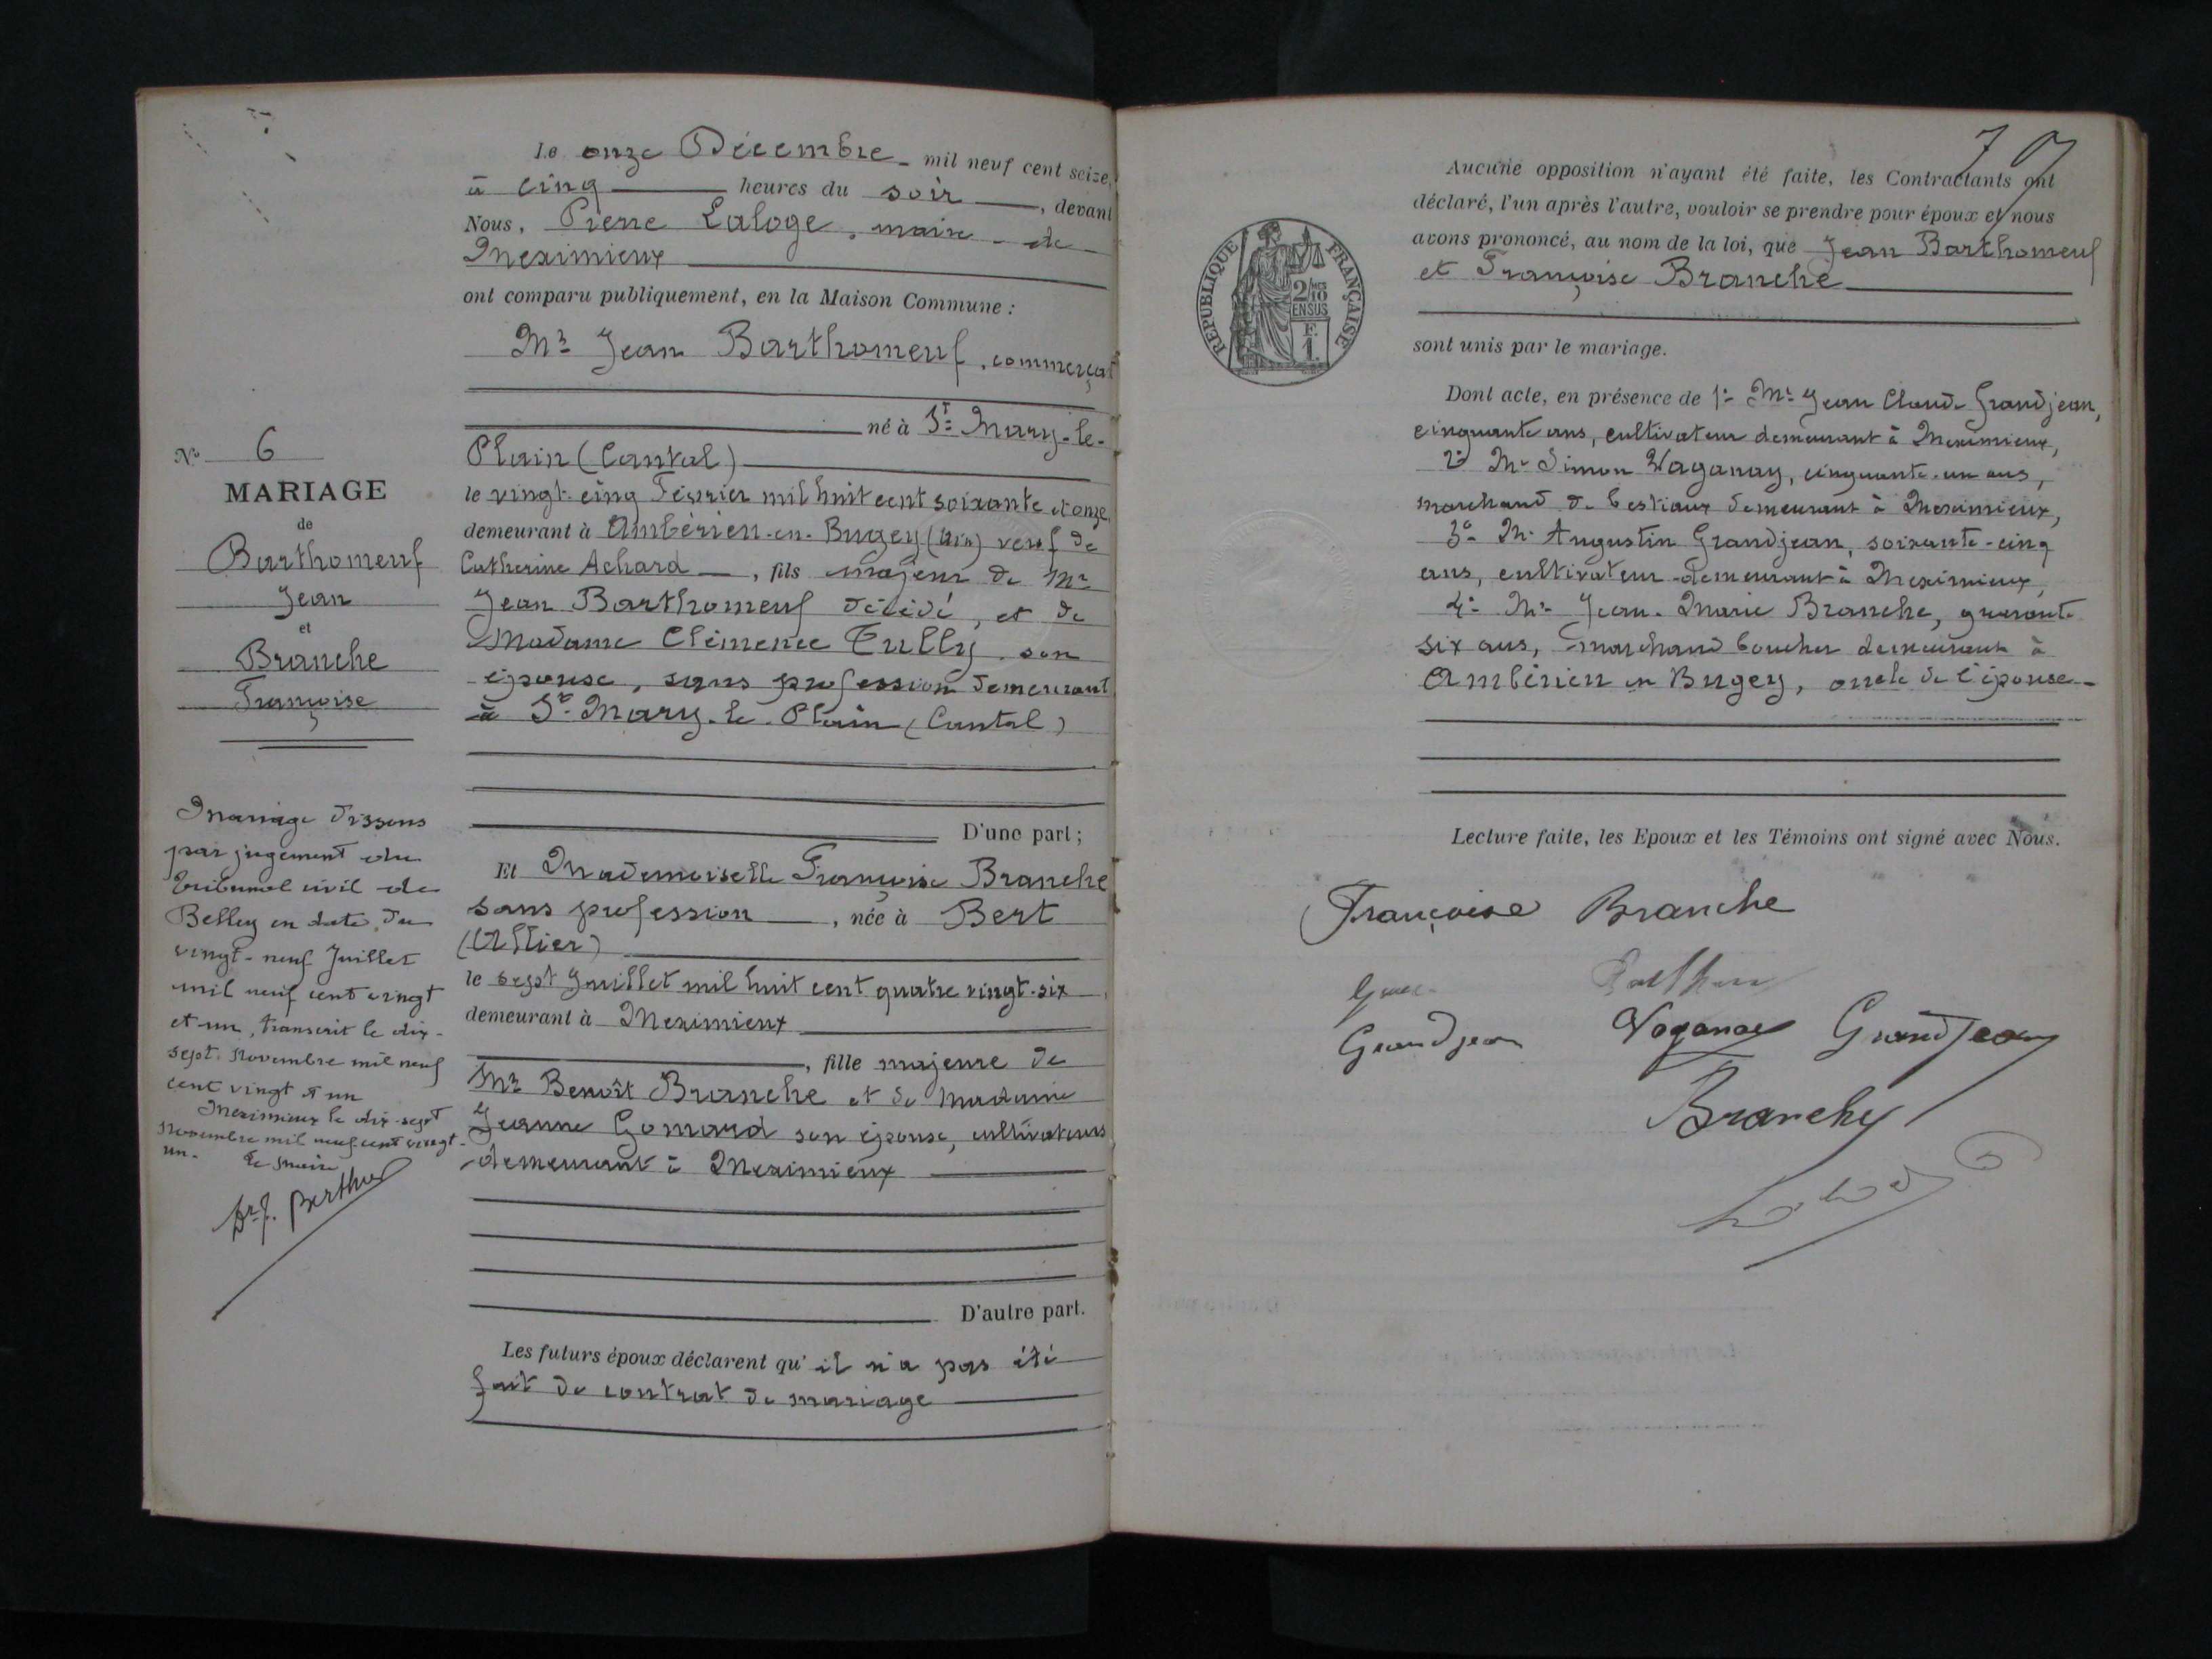 Le onze Décembre mil neuf cent seize,
à cinq heures du soir, devant
Nous, Pierre Laloge, maire de
Meximieux
ont comparu publiquement, en la Maison Commune :
Mr Jean Barthomeuf, commerçant
né à St Mary-le-
Plain (Cantal)
le vingt-cinq Février mil huit cent soixante et onze,
demeurant à Ambérieu-en-Bugey (Ain) veuf de
Catherine Achard, fils majeur de Mr
Jean Barthomeuf décédé, et de
Madame Clémence Tully son
épouse, sans profession demeurant
à St Mary-le-Plain (Cantal)
D'une part;
Et Mademoiselle Françoise Branche
sans profession, née à Bert
(Allier)
le sept Juillet mil huit cent quatre vingt-six,
demeurant à Meximieux
, fille majeure de
Mr Benoît Branche et de Madame
Jeanne Gomard son épouse, cultivateurs
demeurant à Meximieux
D'autre part.
Les futurs époux déclarent qu'il n'a pas été
fait de contrat de mariage
No 6
MARIAGE
de
Barthomeuf
Jean
et
Branche
Françoise
Mariage dissous
par jugement du
Tribunal civil de
Belley en date du
vingt-neuf Juillet
mil neuf cent vingt
et un, transcrit le dix-
sept Novembre mil neuf
cent vingt et un
Meximieux le dix-sept
Novembre mil neuf cent vingt-
un.
Le Maire
Dr J. Berthier
79
Aucune opposition n'ayant été faite, les Contractants ont
déclaré, l'un après l'autre, vouloir se prendre pour époux et nous
avons prononcé, au nom de la loi, que Jean Barthomeuf
et Françoise Branche
sont unis par le mariage.
REPUBLIQUE FRANÇAISE
2/10
EN SUS
F.
1.
Dont acte, en présence de 1° Mr Jean Claude Grandjean,
cinquante ans, cultivateur demeurant à Meximieux,
2° Mr Simon Vaganay, cinquante-un ans,
marchand de bestiaux demeurant à Meximieux,
3° Mr Augustin Grandjean, soixante-cinq
ans, cultivateur demeurant à Meximieux,
4° Mr Jean-Marie Branche, quarante
six ans, marchand boucher demeurant à
Ambérieu en Bugey, oncle de l'épouse
Lecture faite, les Epoux et les Témoins ont signé avec Nous.
Françoise Branche
Grandjean Vaganay Grandjean
Branche